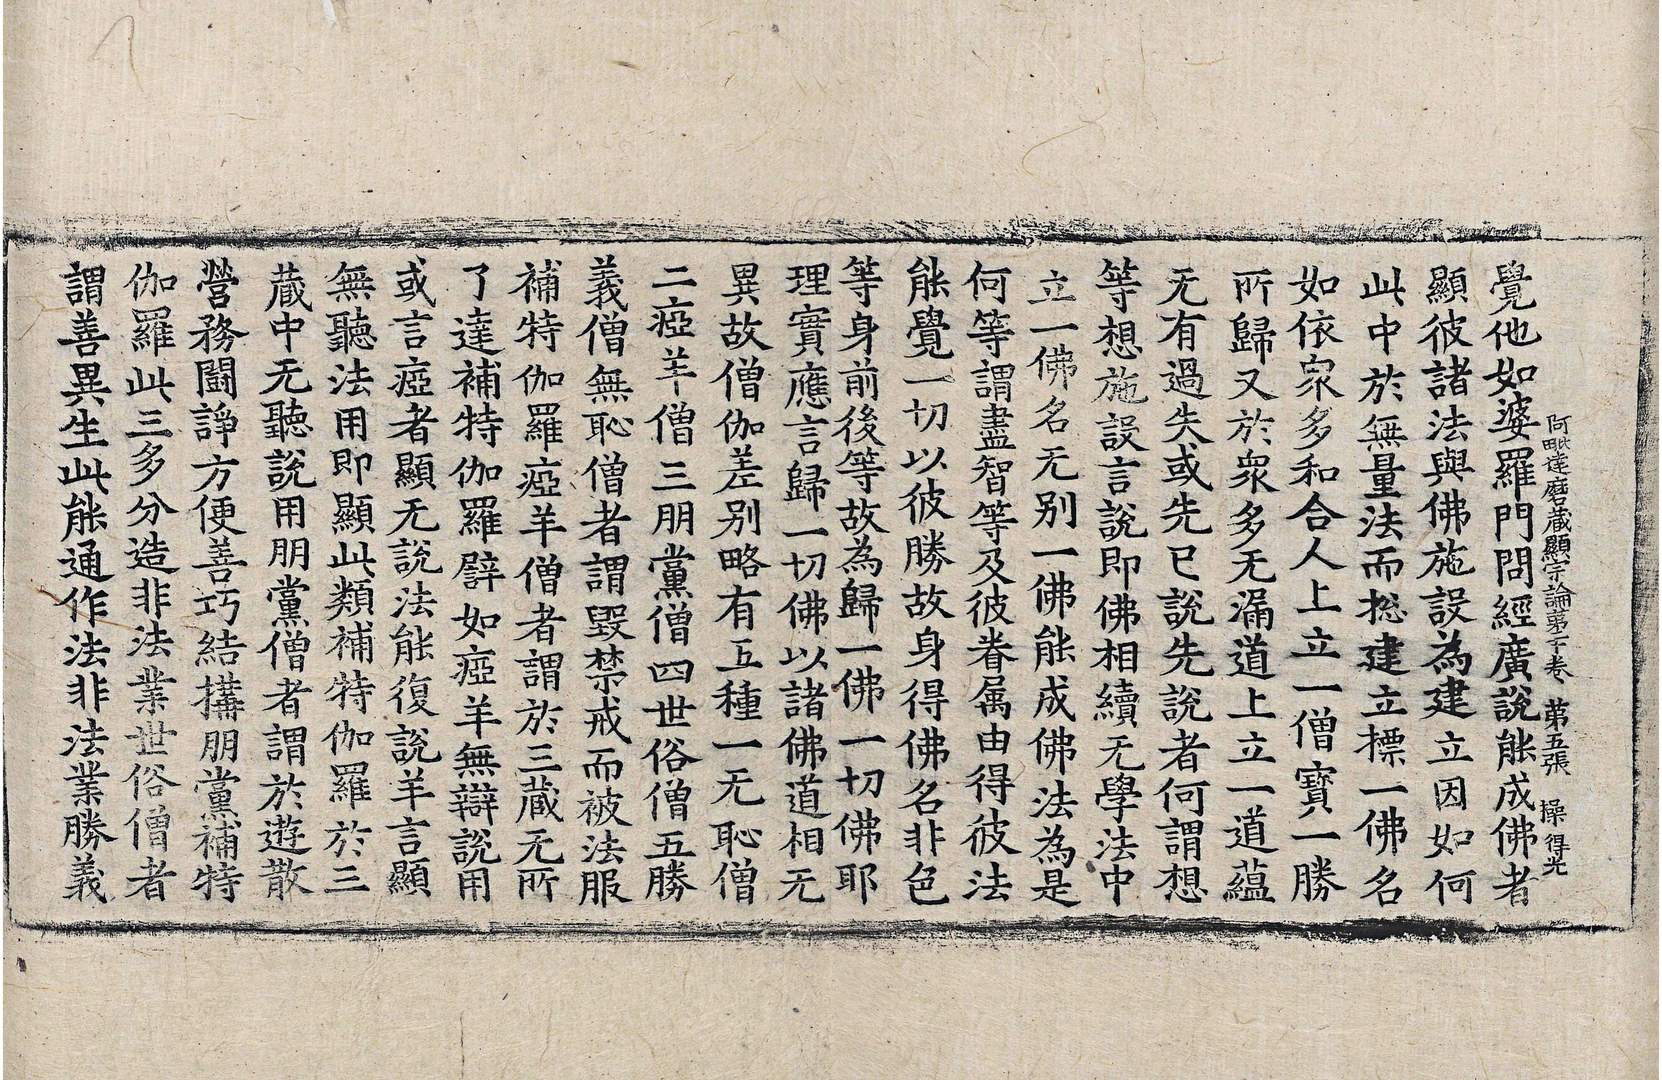 阿毗達磨藏顯宗論第二十卷 第五張 操 得光
覺他如婆羅門問經廣說能成佛者
顯彼諸法與佛施設為建立因如何
此中於無量法而揔建立摽一佛名
如依衆多和合人上立一僧寶一勝
所歸又於衆多无漏道上立一道蘊
无有過失或先已說先說者何謂想
等想施設言說即佛相續无學法中
立一佛名无別一佛能成佛法為是
何等謂盡智等及彼眷属由得彼法
能覺一切以彼勝故身得佛名非色
等身前後等故為歸一佛一切佛耶
理實應言歸一切佛以諸佛道相无
異故僧伽差別略有五種一无恥僧
二瘂羊僧三朋黨僧四世俗僧五勝
義僧無恥僧者謂毀禁戒而被法服
補特伽羅瘂羊僧者謂於三藏无所
了達補特伽羅譬如瘂羊無辯說用
或言瘂者顯无說法能復說羊言顯
無聽法用即顯此類補特伽羅於三
藏中无聽說用朋黨僧者謂於遊散
營務鬪諍方便善巧結搆朋黨補特
伽羅此三多分造非法業世俗僧者
謂善異生此能通作法非法業勝義